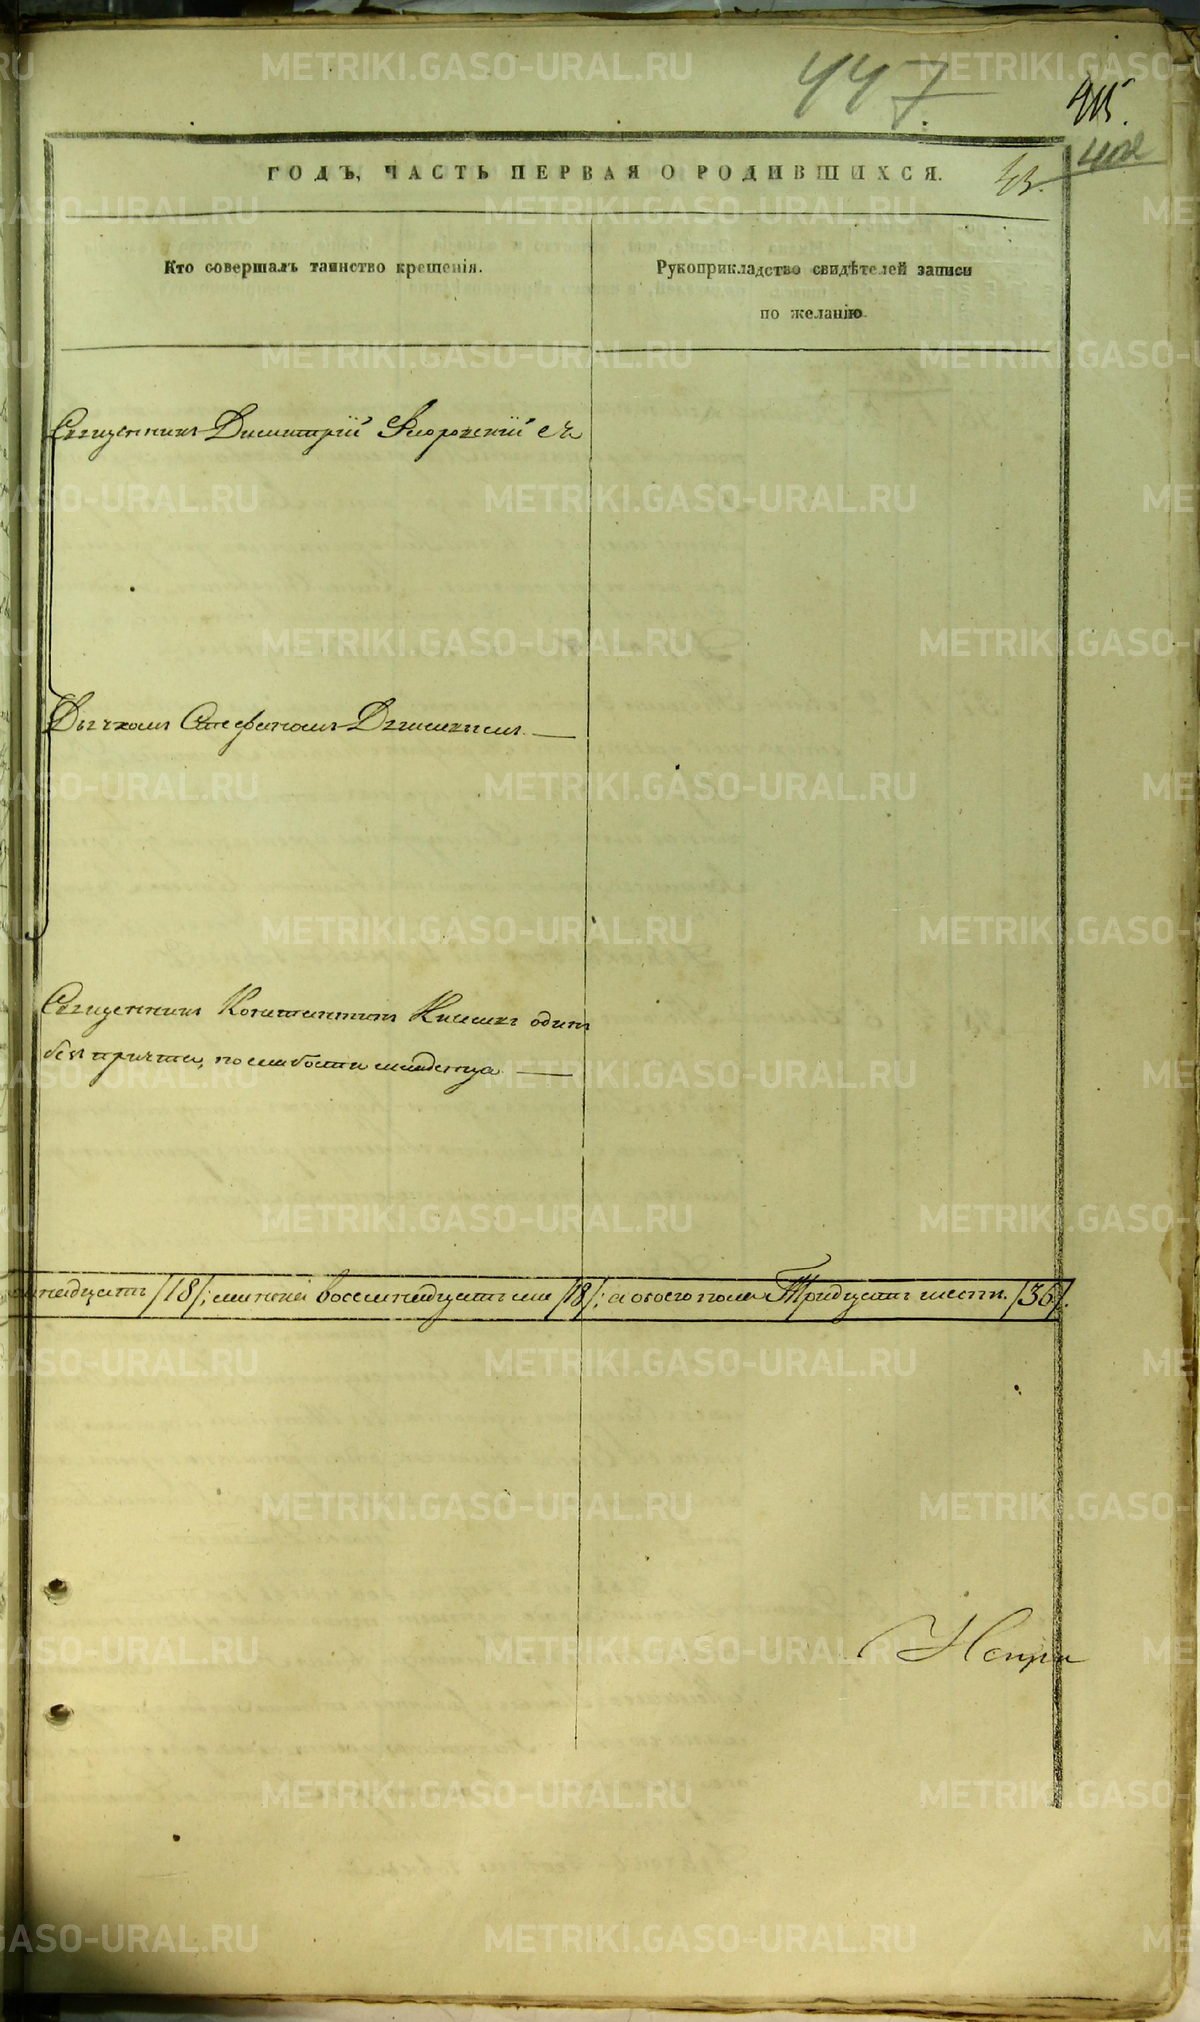 447
415.
402
43.
ГОДЪ, ЧАСТЬ ПЕРВАЯ О РОДИВШИХСЯ.
Кто совершалъ таинство крещенія.
Рукоприкладство свидѣтелей записи
по желанію.
Священникъ Димитрій съ
Дьячкомъ Стефаномъ
Священникъ Константинъ одинъ
безъ причта, по слабости младенца
/18/; женска восемнадцать /18/; а обоего пола Тридцать шесть. /36/.
METRIKI.GASO-URAL.RU